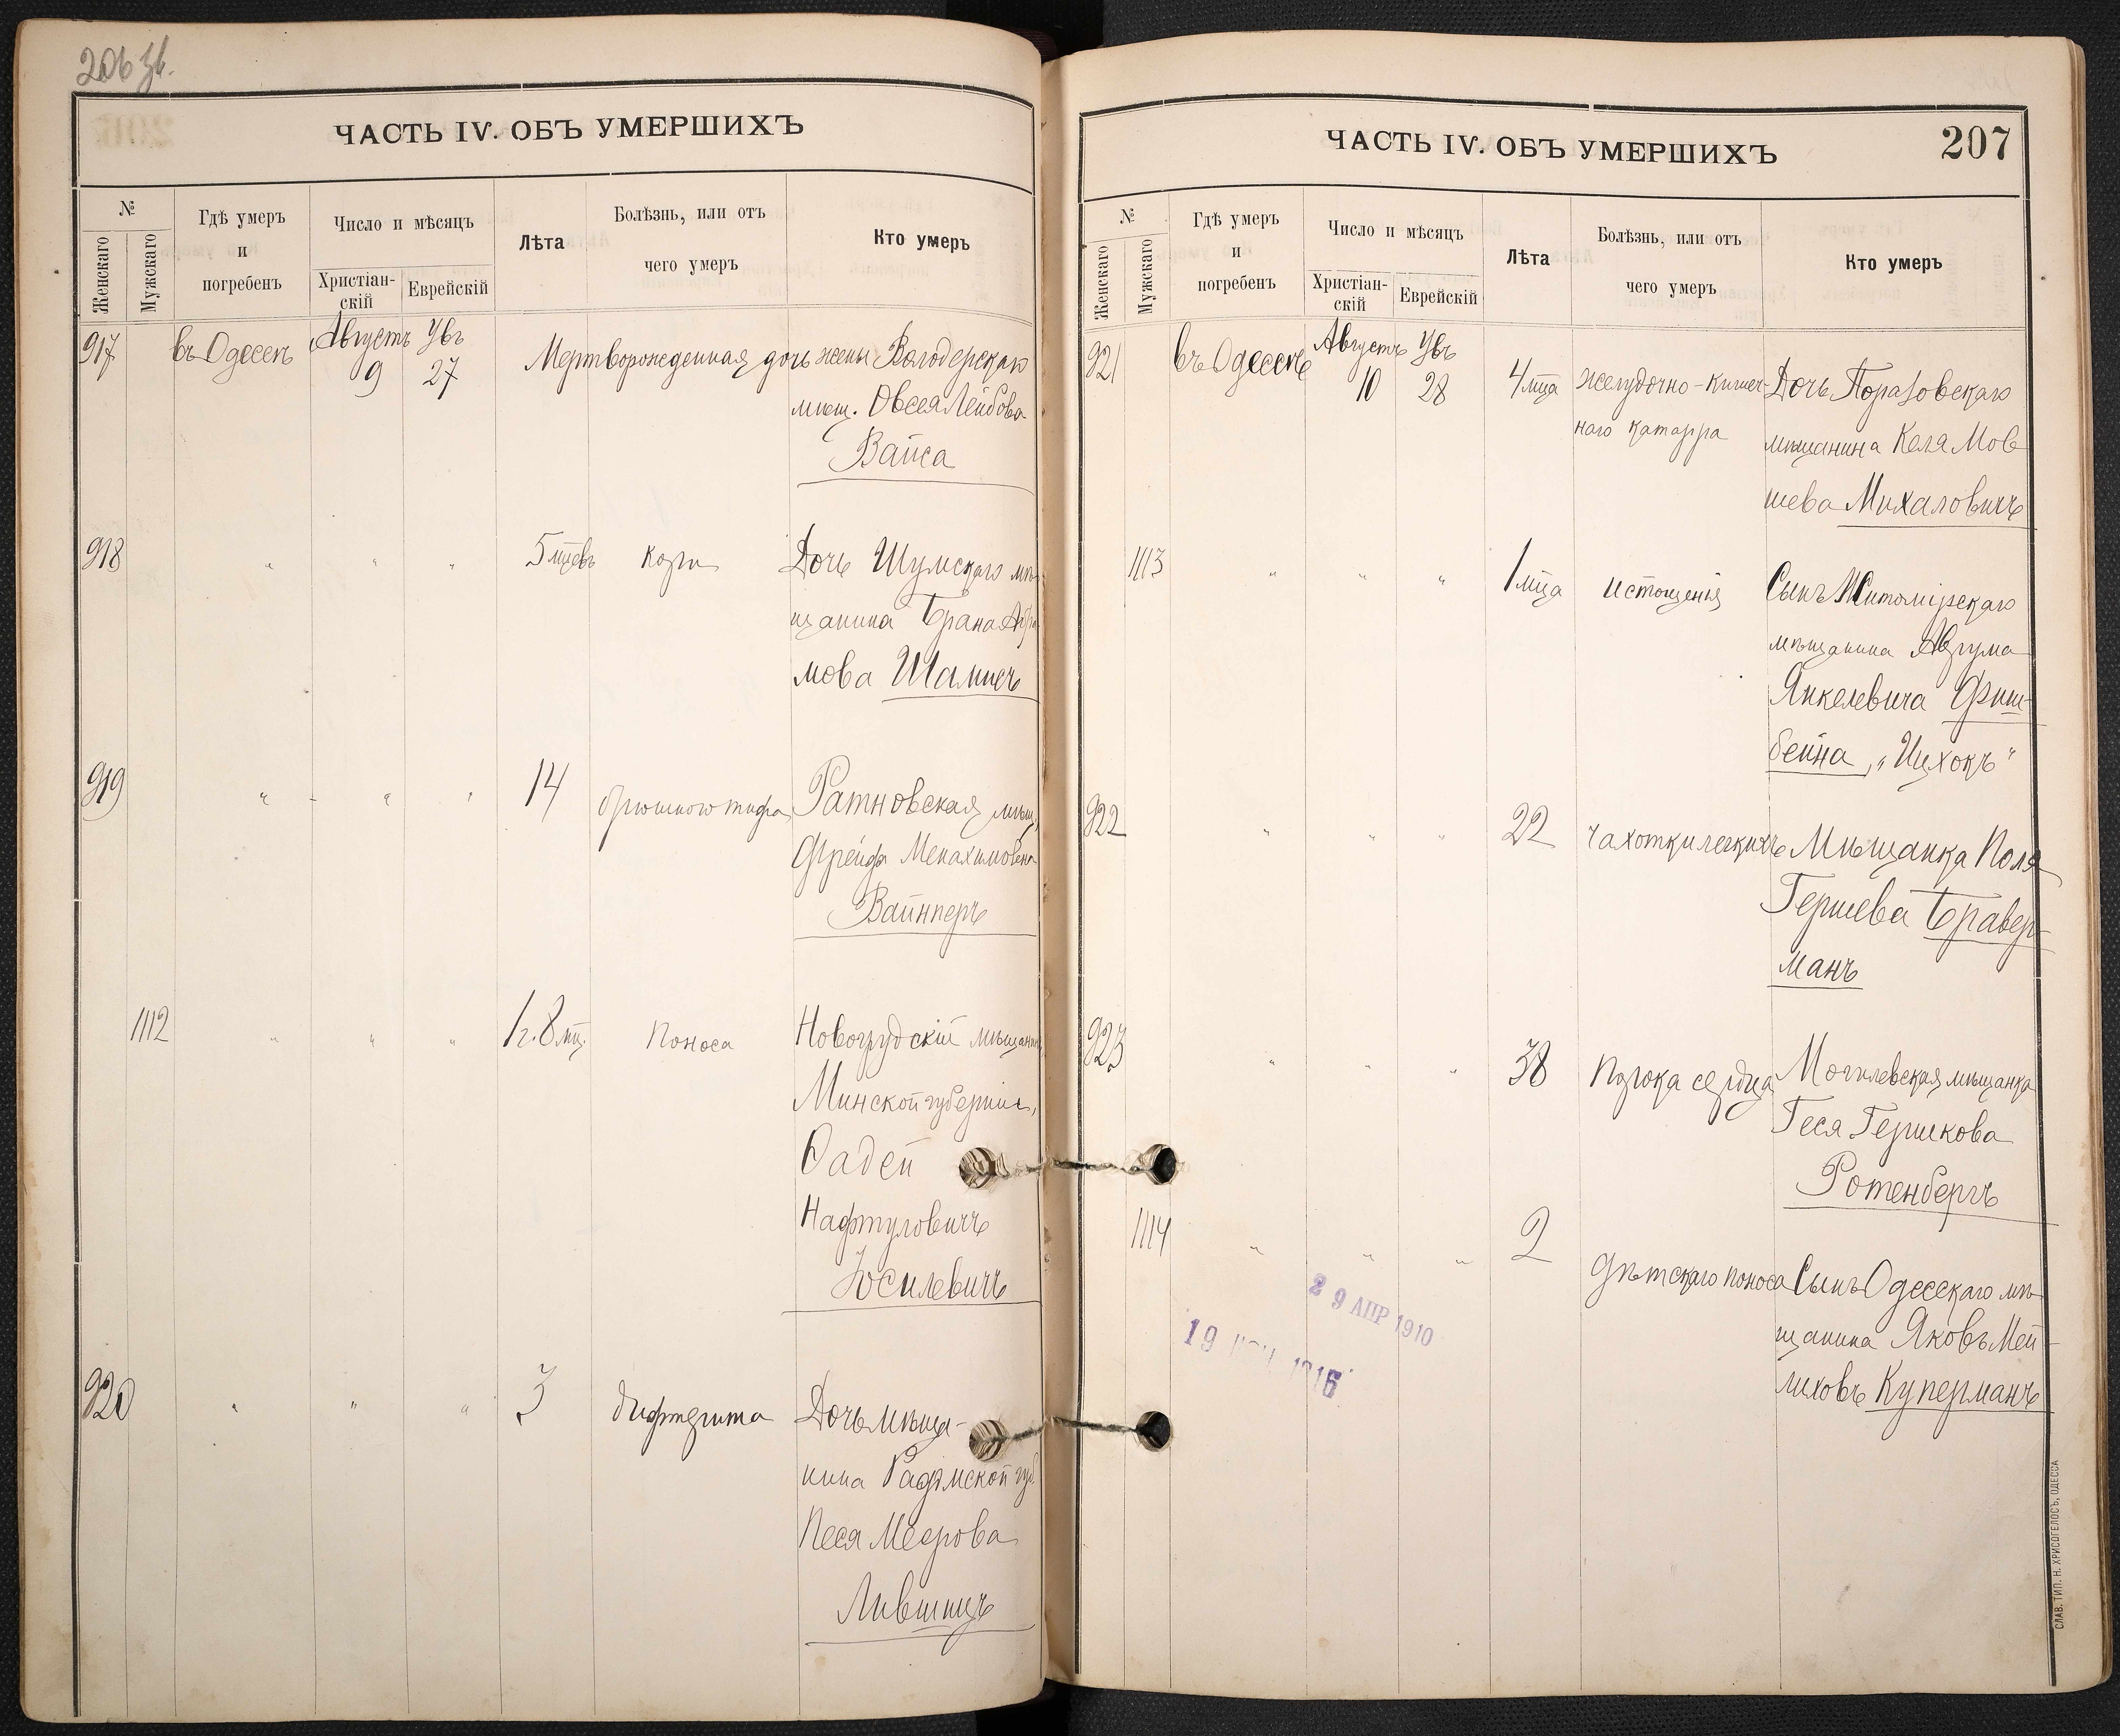 206 зв.
ЧАСТЬ IV. ОБЪ УМЕРШИХЪ
№
Женскаго
Мужскаго
Гдѣ умеръ
и
погребенъ
Число и мѣсяцъ
Христіан-
скій
Еврейскій
Лѣта
Болѣзнь, или отъ
чего умеръ
Кто умеръ
917 въ Одессѣ Августъ 9 Увъ 27 Мертворожденная дочь жены Володерскаго
мѣщ. Овсея Лейбова
Вайса
918 " " " 5 мцевъ Кори Дочь Шумскаго мѣ-
щанина Брана Абра
мова Шампечъ
919 " " " 14 брюшного тифа Ратновская мѣщ.
Фрейда Менахимовна
Вайнперъ
1112 " " " 1 г. 8 мц. Поноса Новогрудскій мѣщанинъ
Минской губерніи,
Фадей
Нафтуловичъ
Юсилевичъ
920 " " " 3 дифтерита Дочь мѣща-
нина Радомской губ
Песя Меерова
Лившицъ
ЧАСТЬ IV. ОБЪ УМЕРШИХЪ
207
№
Женскаго
Мужскаго
Гдѣ умеръ
и
погребенъ
Число и мѣсяцъ
Христіан-
скій
Еврейскій
Лѣта
Болѣзнь, или отъ
чего умеръ
Кто умеръ
921 въ Одессѣ Августъ 10 Увъ 28 4 мца желудочно-кишеч- Дочь Поразовскаго
наго катарра мѣщанина Келя Мов
шева Михаловичъ
1113 " " " 1 мца истощенія Сынъ Житомірскаго
мѣщанина Аврума
Янкелевича Фиш-
бейна, "Ицхокъ"
922 " " " 22 чахотки легкихъ Мѣщанка Поля
Гершева Бравер-
манъ
923 " " " 38 Порока сердца Могилевская мѣщанка
Геся Гершкова
Ротенбергъ
1114 " " " 2 дѣтскаго поноса Сынъ Одесскаго мѣ
щанина Яковъ Мей-
лиховъ Куперманъ
29 АПР 1910
19 1916
СЛАВ. ТИП. Н. ХРИСОГЕЛОСЪ, ОДЕССА